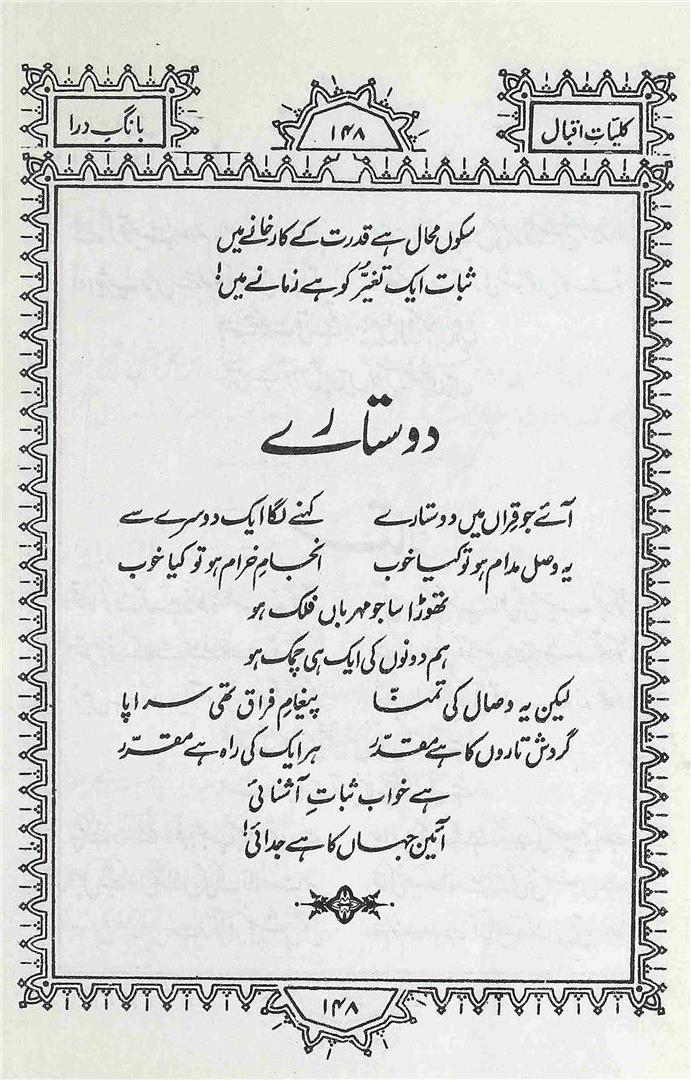 کلیّاتِ اقبال
۱۴۸
بانگِ درا
سکوں محال ہے قدرت کے کارخانے میں
ثبات ایک تغیّر کو ہے زمانے میں!
دو ستارے
آئے جو قِراں میں دو ستارے کہنے لگا ایک دوسرے سے
یہ وصل مدام ہو تو کیا خوب انجامِ خرام ہو تو کیا خوب
تھوڑا سا جو مہرباں فلک ہو
ہم دونوں کی ایک ہی چمک ہو
لیکن یہ وصال کی تمنّا پیغامِ فراق تھی سراپا
گردش تاروں کا ہے مقدّر ہر ایک کی راہ ہے مقرّر
ہے خواب ثباتِ آشنائی
آئین جہاں کا ہے جدائی!
۱۴۸